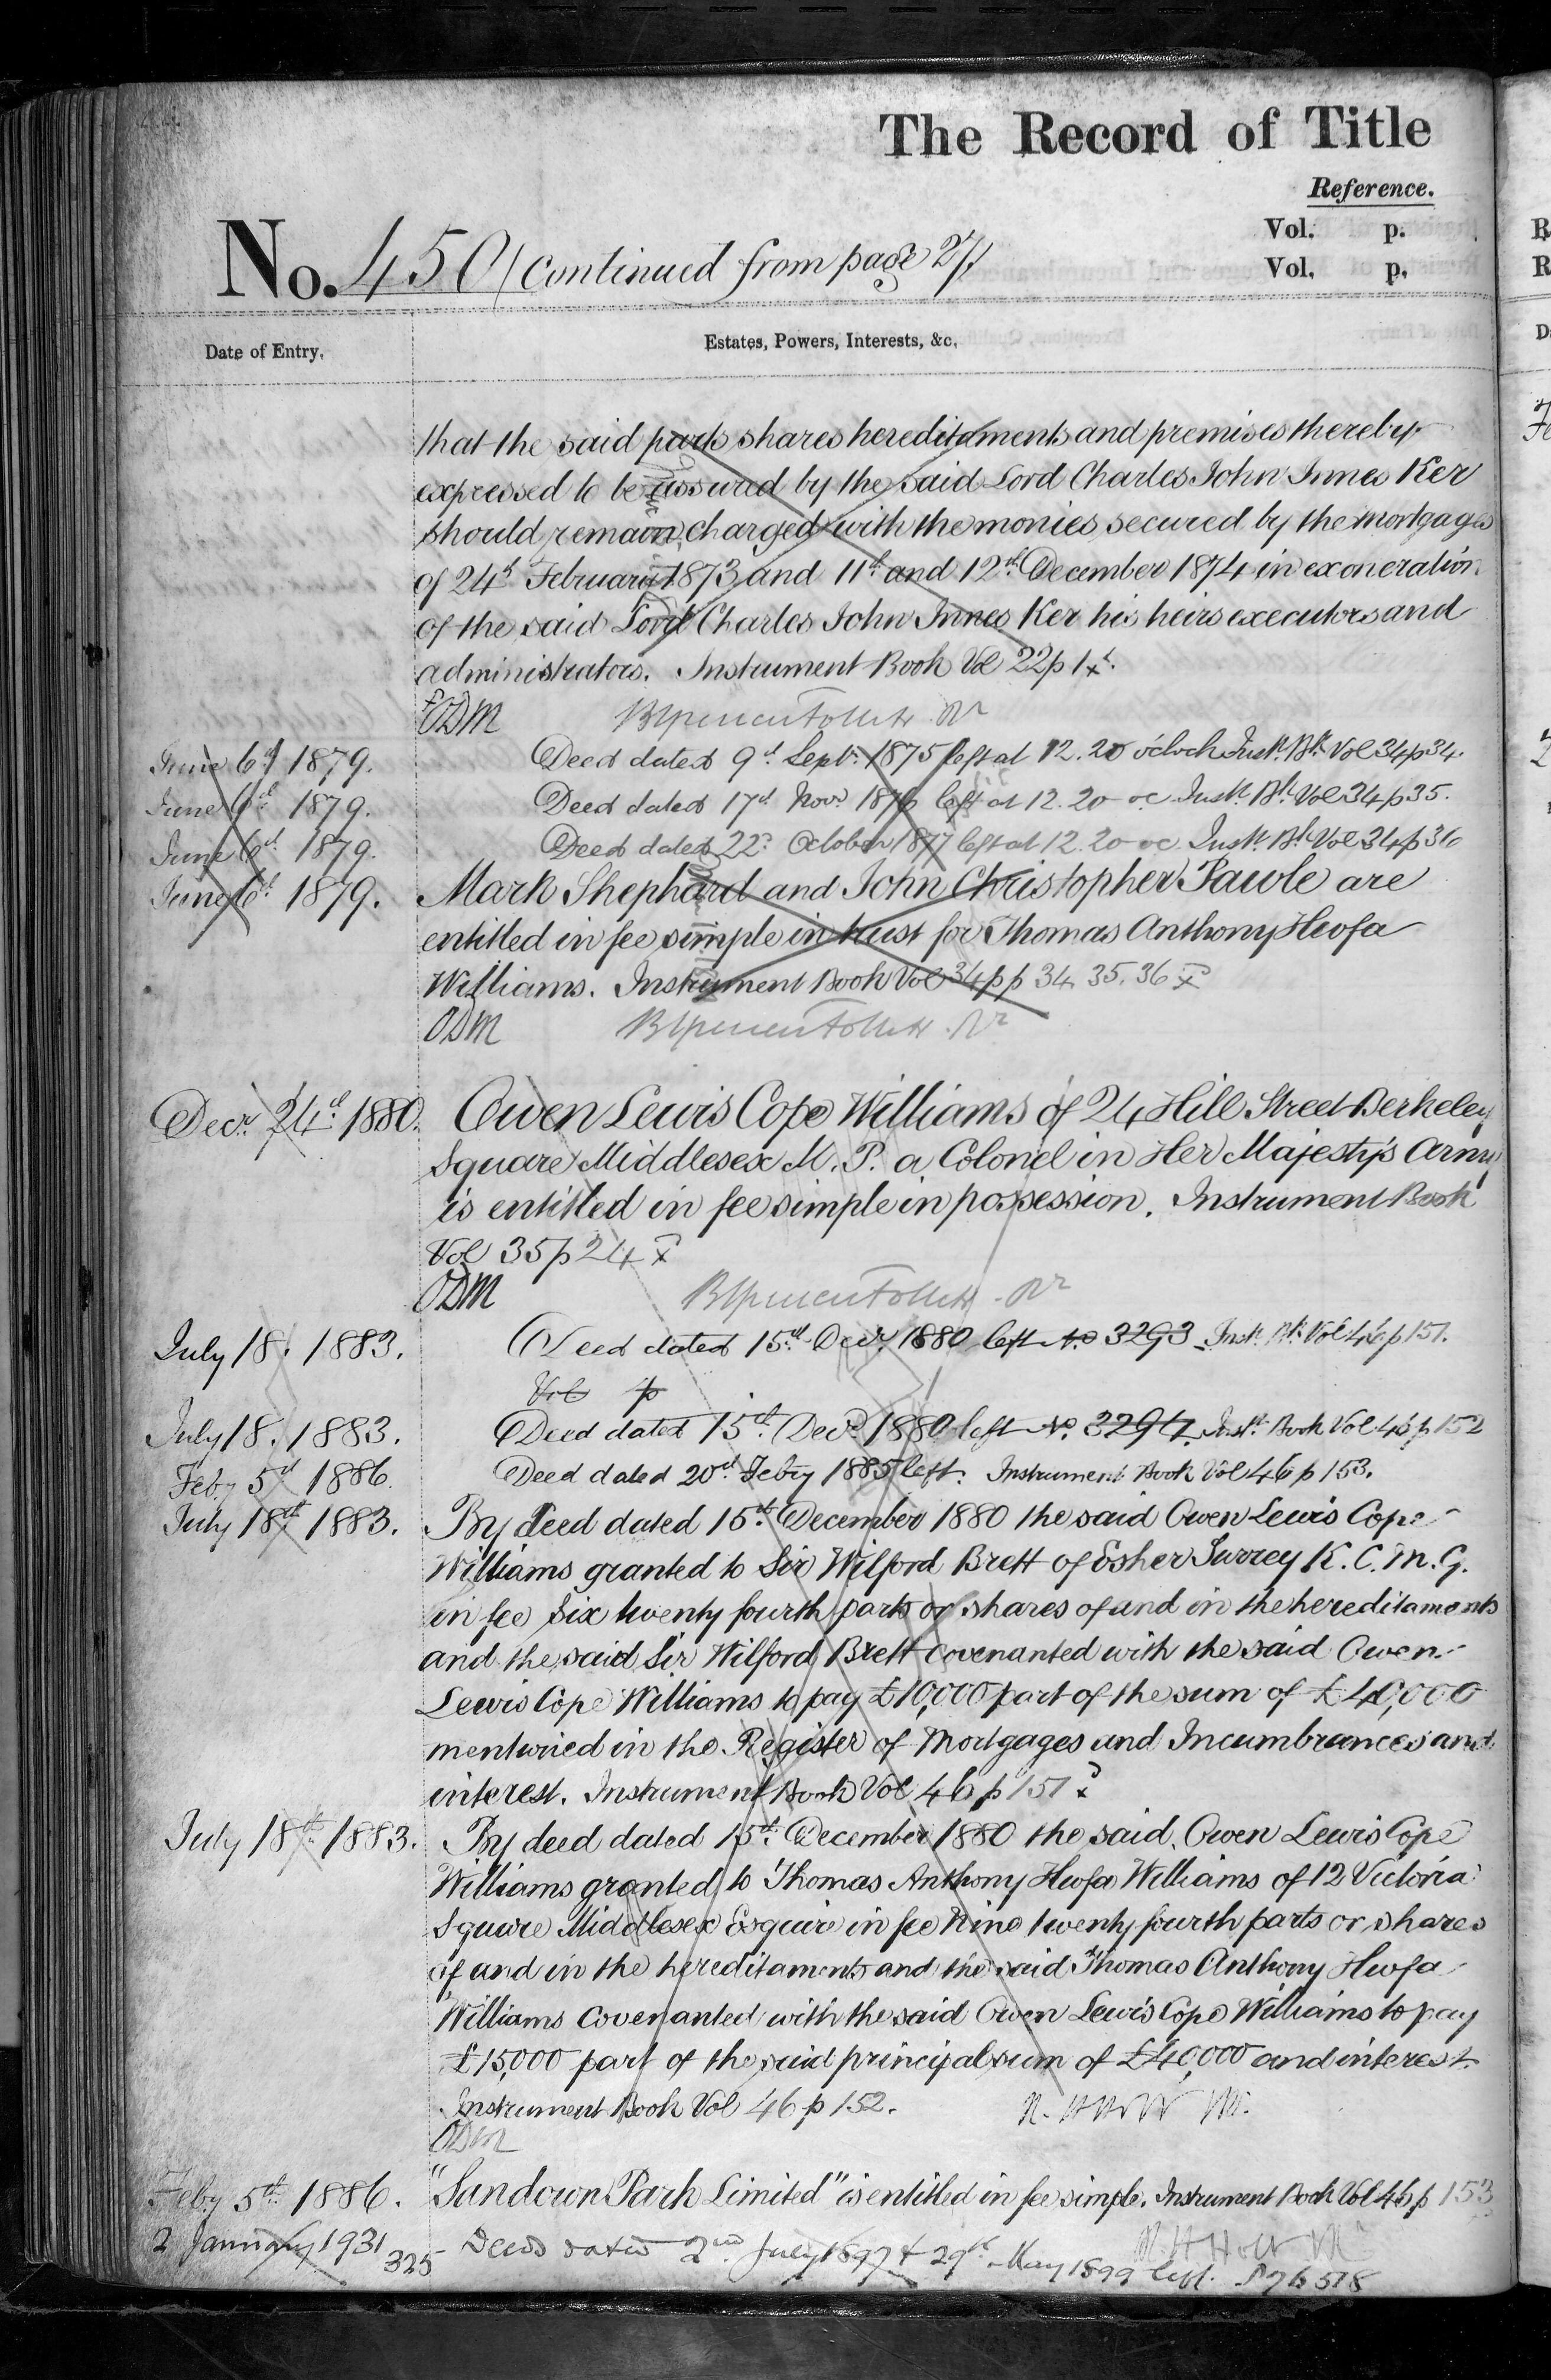 The Record of Title
Reference.
Vol. p.
Vol. p.
No. 450 (continued from page 27)
Date of Entry.
Estates, Powers, Interests, &c.
that the said parts shares hereditaments and premises thereby
expressed to be assured by the said Lord Charles John Innes Ker
should remain charged with the monies secured by the mortgages
of 24th February 1873 and 11th and 12th December 1874 in exoneration
of the said Lord Charles John Innes Ker his heirs executors and
administrators. Instrument Book Vol 22 p 1
ODM
June 6th 1879. Deed dated 9th Septr 1875 left at 12.20 o'clock Instt Bk Vol 34 p 34.
June 6th 1879. Deed dated 17th Novr 1876 left at 12.20 oc Instt Bk Vol 34 p 35.
June 6th 1879. Deed dated 22d October 1877 left at 12.20 oc Instt Bk Vol 34 p 36
June 6th 1879. Mark Shephard and John Christopher Pawle are
entitled in fee simple in trust for Thomas Anthony Hwfa
Williams. Instrument Book Vol 34 pp 34. 35. 36
ODM
Decr 24th 1880. Owen Lewis Cope Williams of 24 Hill Street Berkeley
Square Middlesex M.P. a Colonel in Her Majesty's Army
is entitled in fee simple in possession. Instrument Book
Vol 35 p 24
ODM
July 18. 1883. Deed dated 15th Decr 1880 left No 3293 Instt Bk Vol 46 p 151.
Vol p
July 18. 1883. Deed dated 15th Decr 1880 left No. 3294. Instt Book Vol 46 p 152
Feby 5th 1886. Deed dated 20th Feby 1885 left. Instrument Book Vol 46 p 153.
July 18th 1883. By deed dated 15th December 1880 the said Owen Lewis Cope
Williams granted to Sir Wilford Brett of Esher Surrey K.C.M.G.
in fee six twenty fourth parts or shares of and in the hereditaments
and the said Sir Wilford Brett covenanted with the said Owen
Lewis Cope Williams to pay £10,000 part of the sum of £40,000
mentioned in the Register of Mortgages and Incumbrances and
interest. Instrument Book Vol 46 p 151
July 18th 1883. By deed dated 15th December 1880 the said Owen Lewis Cope
Williams granted to Thomas Anthony Hwfa Williams of 12 Victoria
Square Middlesex Esquire in fee Nine twenty fourth parts or shares
of and in the hereditaments and the said Thomas Anthony Hwfa
Williams Covenanted with the said Owen Lewis Cope Williams to pay
£15,000 part of the said principal sum of £40,000 and interest.
Instrument Book Vol 46 p 152.
ODM
Feby 5th 1886. "Sandown Park Limited" is entitled in fee simple. Instrument Book Vol 46 p 153
2 January 1931 325 Deeds dated 2nd July 1897 & 29th May 1899 left.